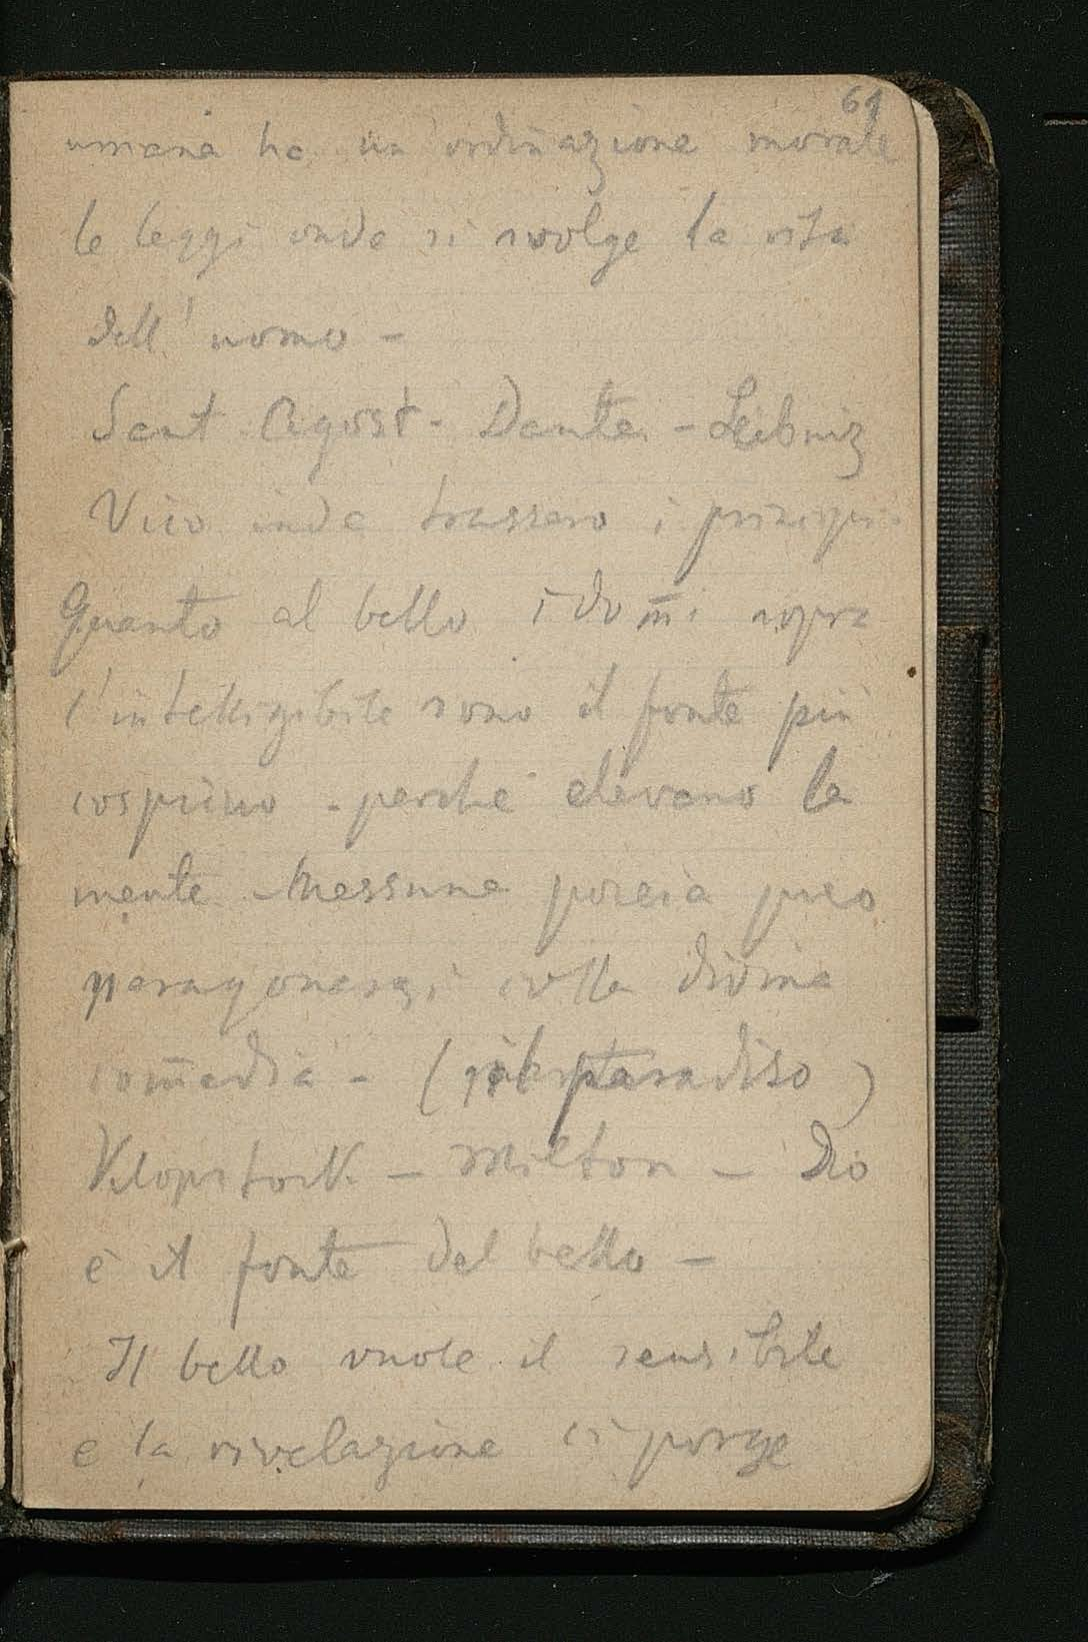 61
umana ha un ordinazione morale
le leggi onde si svolge la vita
dell' uomo -
Sant Agost - Dante - Leibniz
Vico inde trassero i principi
Quanto al bello i dom̅i sopra
l'intelligibile sono il fonte più
cospicuo - perchè elevano la
mente - Nessuna poesia puo
paragonarsi colla divina
com̅edia - (il paradiso)
Klopstock - Milton - Dio
è il fonte del bello -
Il bello vuole il sensibile
e la rivelazione ci porge